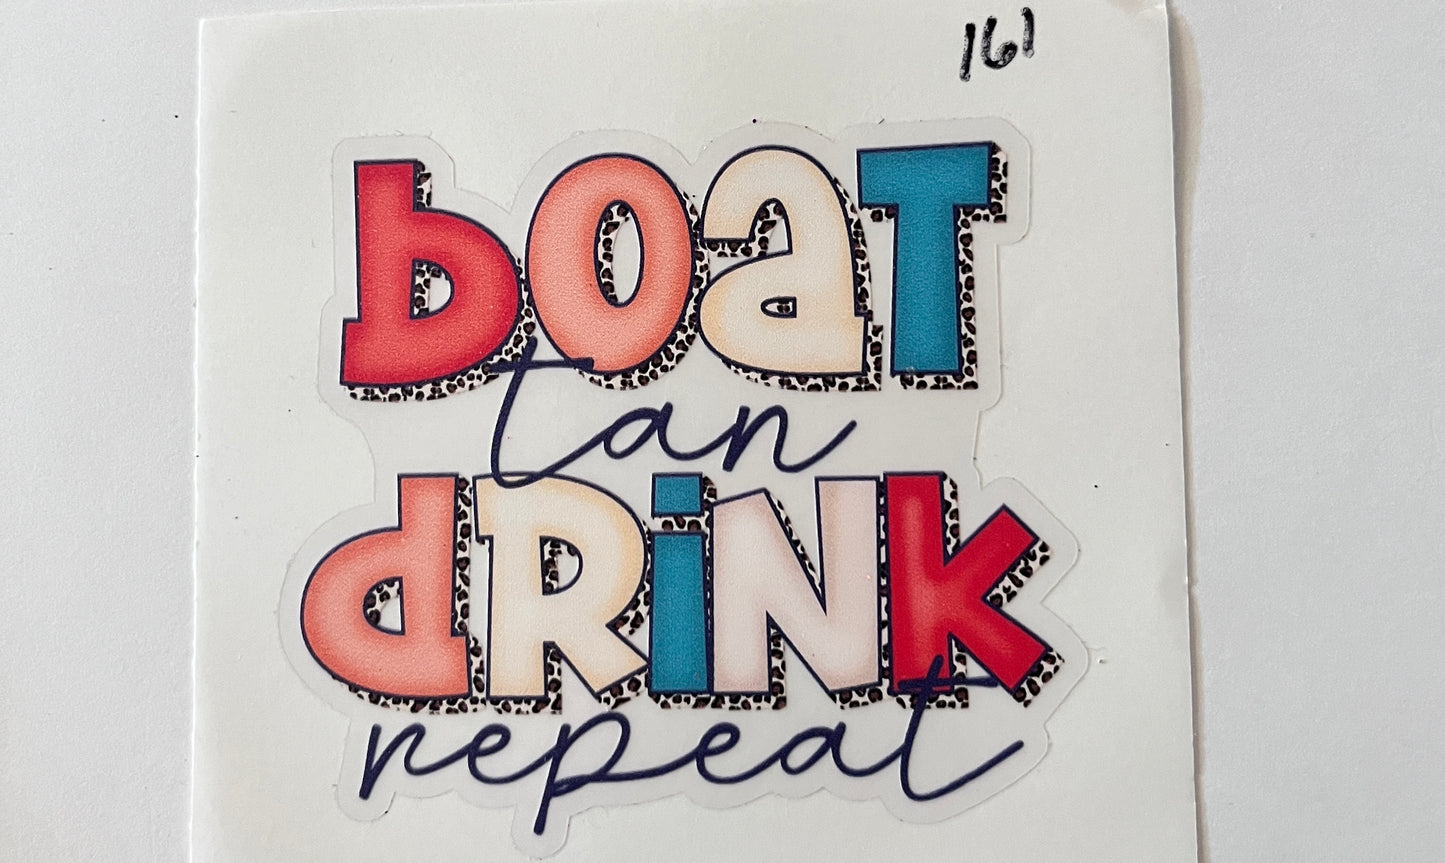 161
boaT
tan
dRiNk
repeat